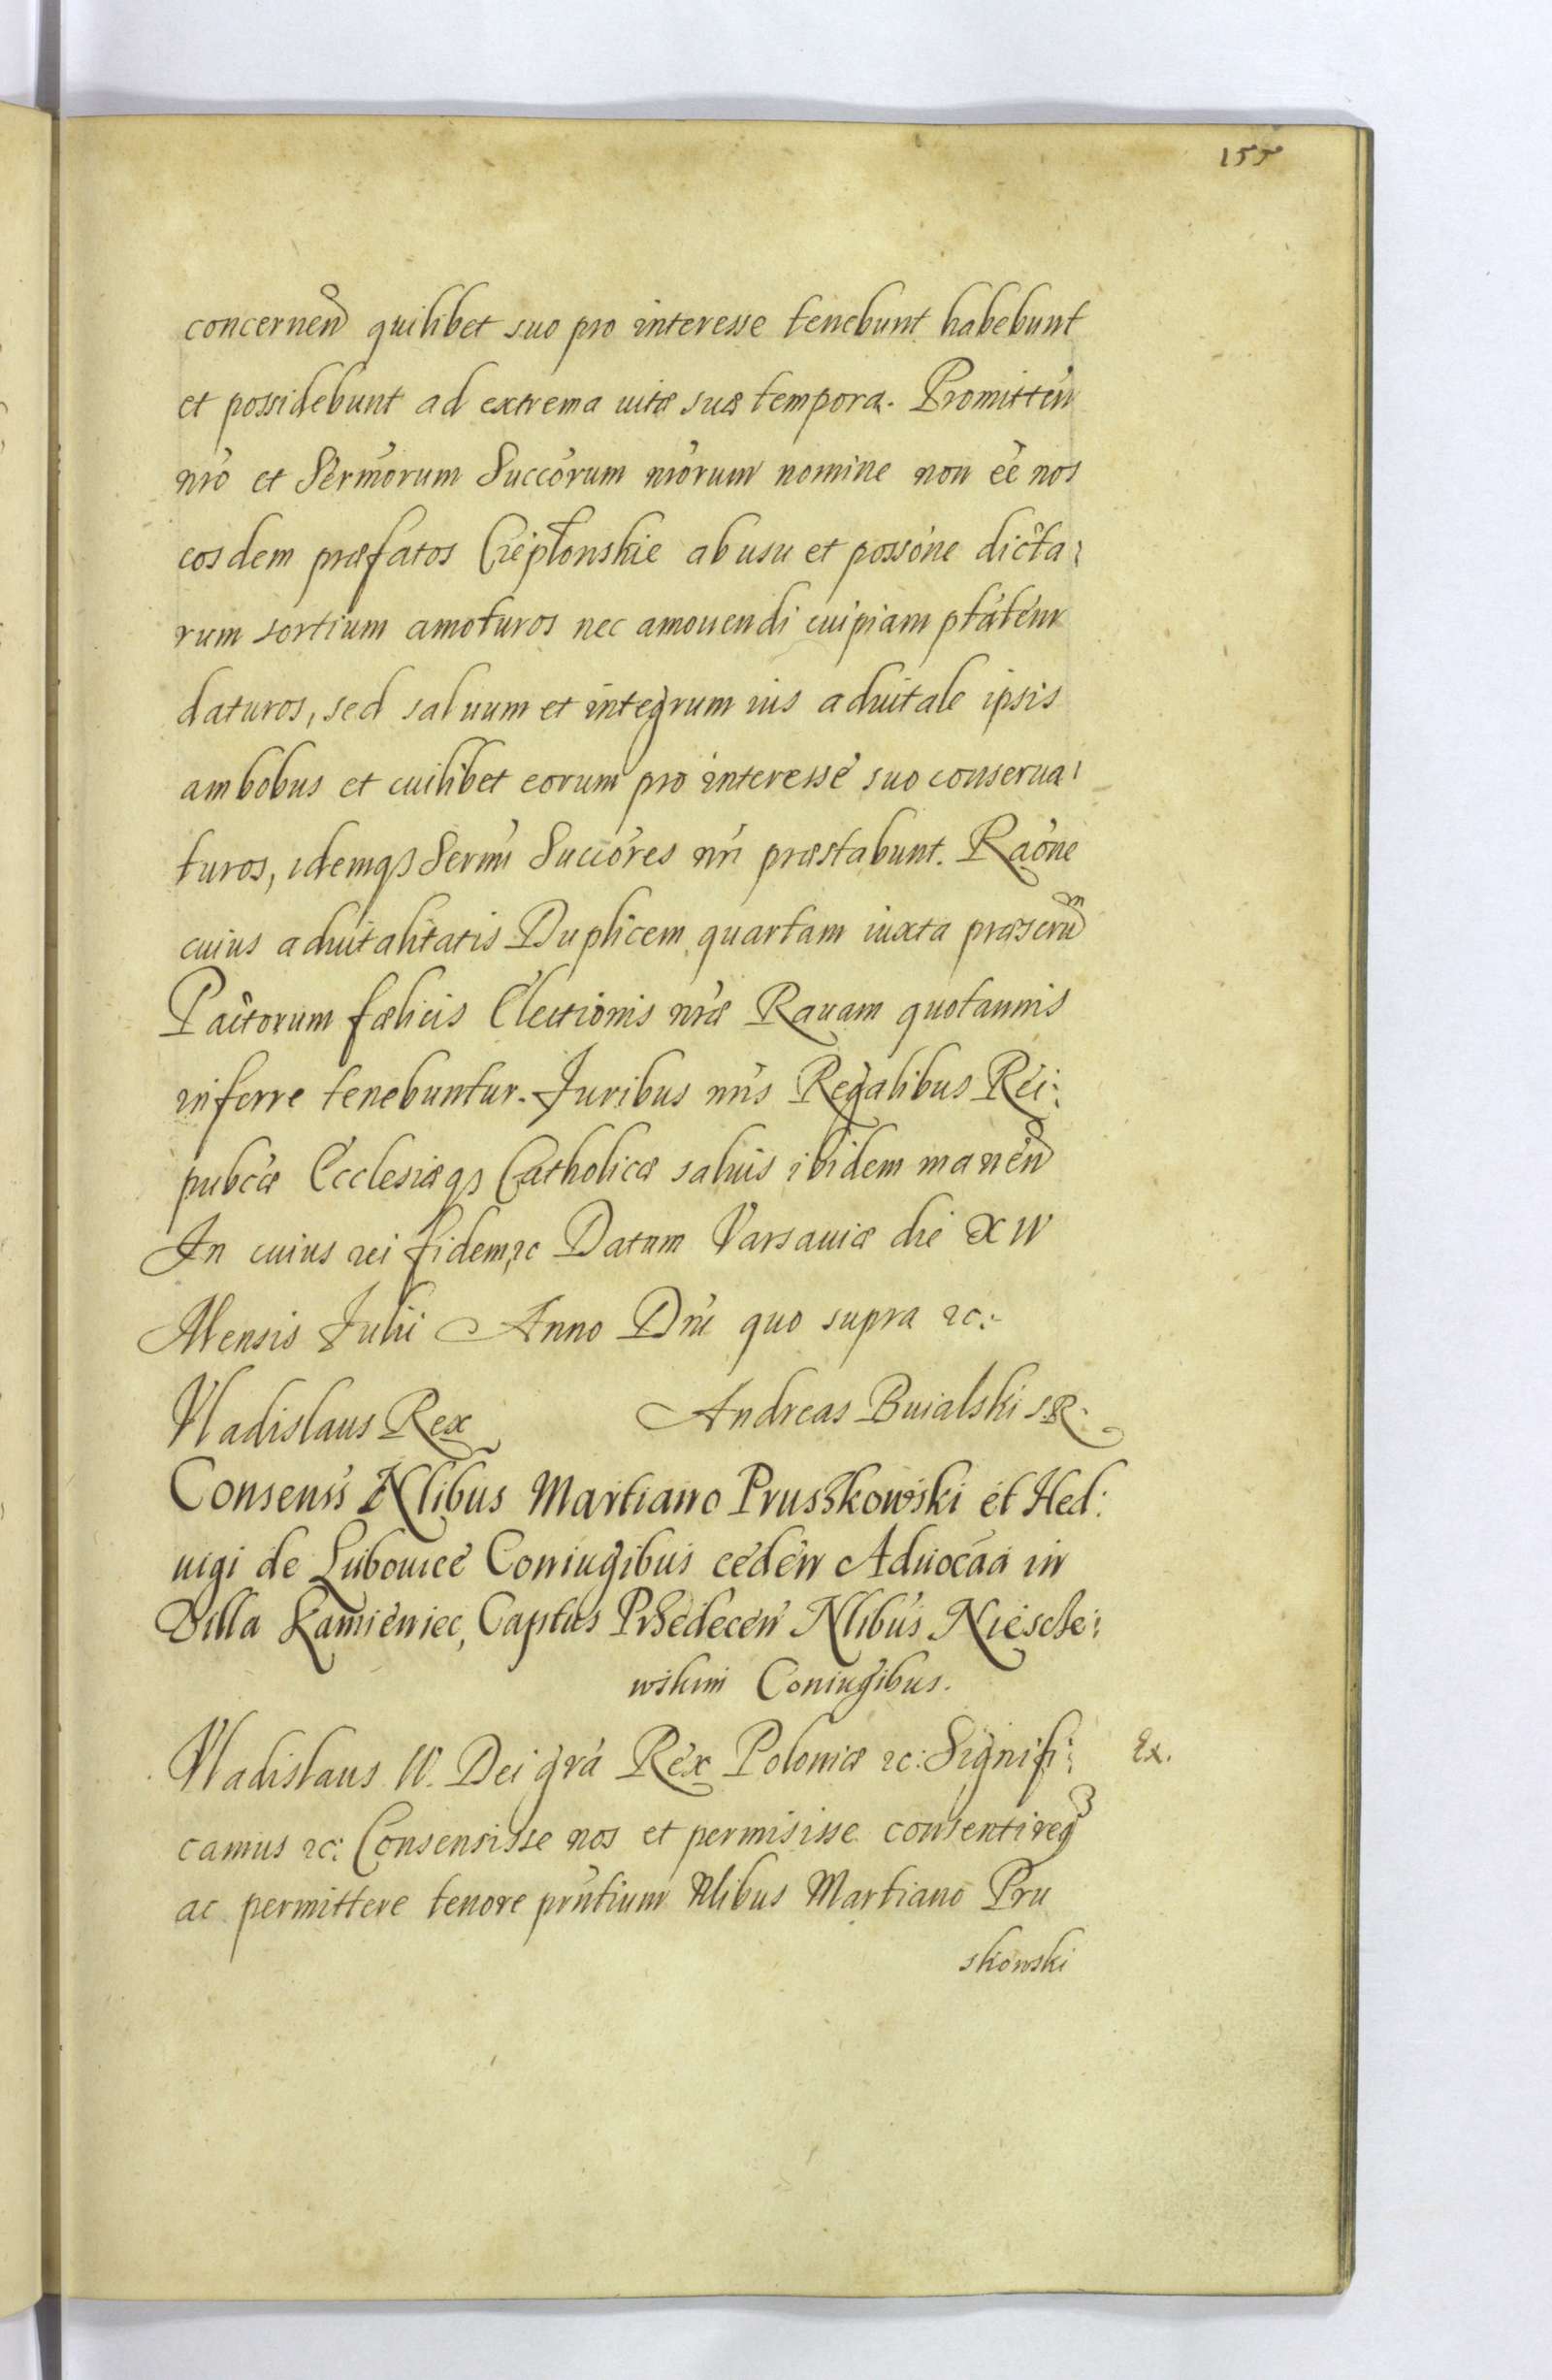 155
concernen quilibet suo pro interesse tenebunt habebunt
et possidebunt ad extrema uitæ suæ tempora. Promitten
nro et Sermorum Succorum nrorum nomine non eé nos
eosdem præfatos Cieplonskie ab usu et possone dicta:
rum sortium amoturos nec amouendi cuipiam ptatem
daturos, sed saluum et integrum ius aduitale ipsis
ambobus et cuilibet eorum pro interesse suo conserua:
turos, idemqз Sermi Succores nri præstabunt. Raone
cuius aduitalitatis Duplicem quartam iuxta præscrium
Pactorum fælicis Electionis nræ Rauam quotannis
inferre tenebuntur. Juribus nris Regalibus Rei:
pubcæ Ecclesiæqз Catholicæ saluis ibidem manen
In cuius rei fidem, &c Datum Varsauiæ die XIV
Mensis Julii Anno Dni quo supra &c:
Vladislaus Rex Andreas Buialski S.R.
Consens Nlibus Martiano Prusskowski et Hed:
uigi de Lubouice Coniugibus ceden Aduocaa in
Villa Kamieniec, Captus Przedecen Nlibus Niesche:
wskim Coniugibus.
Vladislaus IV. Dei gra Rex Poloniæ &c: Signifi: Ex.
camus &c: Consensisse nos et permisisse consentireqз
ac permittere tenore prntium Nlibus Martiano Pru
skowski